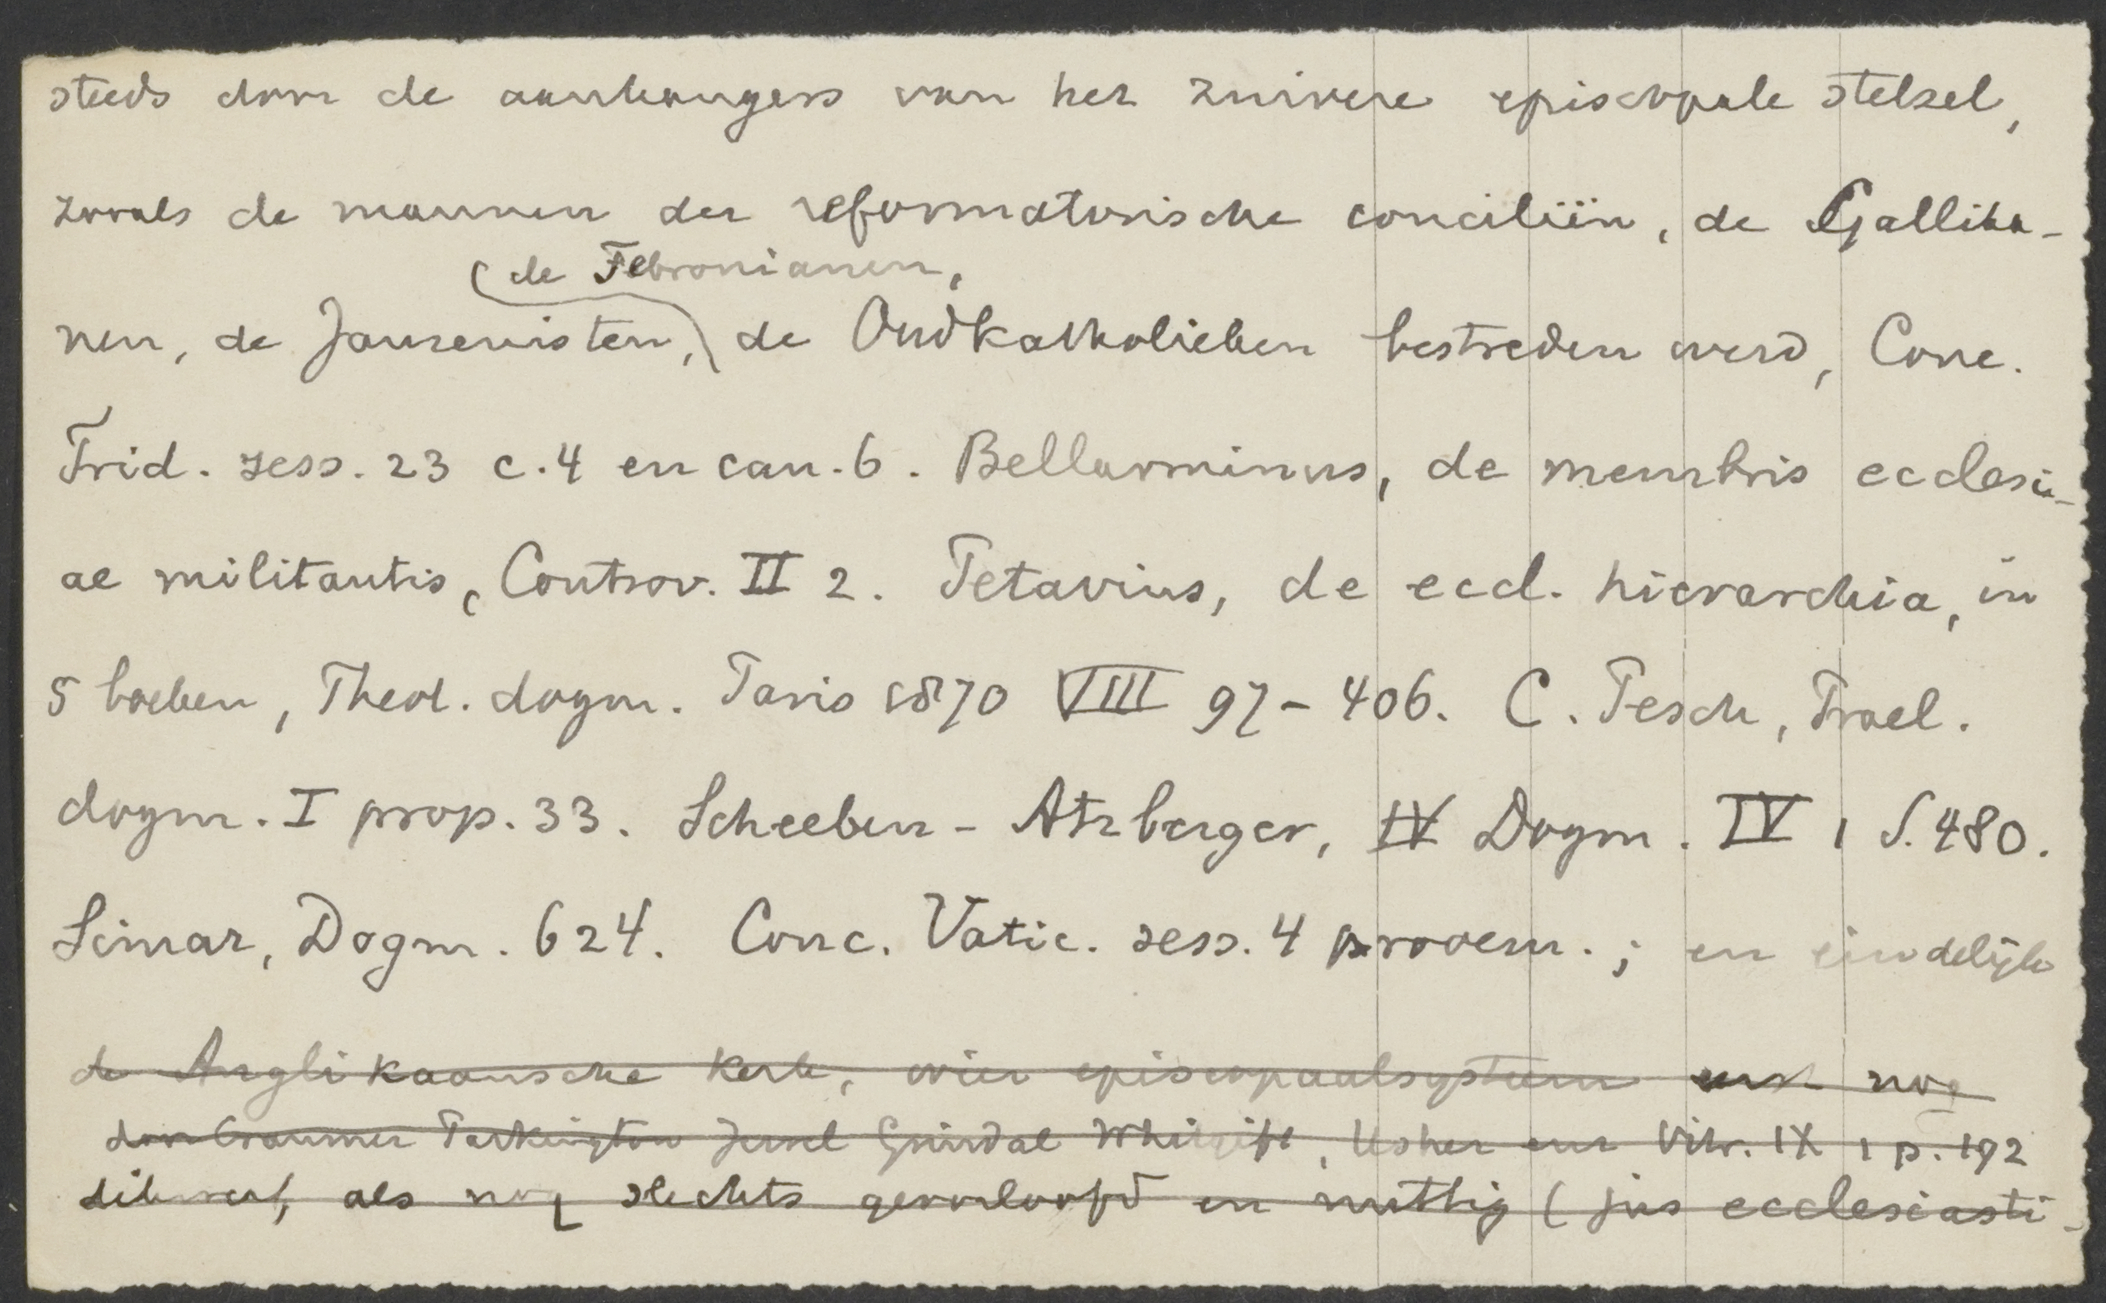 steeds door de aanhangers van het zuivere episcopale stelsel,
zooals de mannen der reformatorische conciliën, de Gallika-
de Febronianen,
nen, de Jansenisten, de Oudkatholieken bestreden werd, Conc.
Trid. sess. 23 c. 4 en can. 6. Bellarminus, de membris ecclesi-
ae militantis, Controv. II 2. Petavius, de eccl. hierarchia, in
5 boeken, Theol. dogm. Paris 1870 VIII 97-406. C. Pesch, Prael.
dogm. I prop. 33. Scheeben-Atzberger, IV Dogm. IV 1 S. 480.
Simar, Dogm. 624. Conc. Vatic. sess. 4 prooem.; en eindelijk
de Anglikaansche kerk, wier episcopaalsysteem eerst nog
door Cranmer Parkington Jewel Grindal Whitgift, Usher enz Vitr. IX 1 p. 192
als nog slechts geoorloofd en nuttig (jus ecclesiasti-